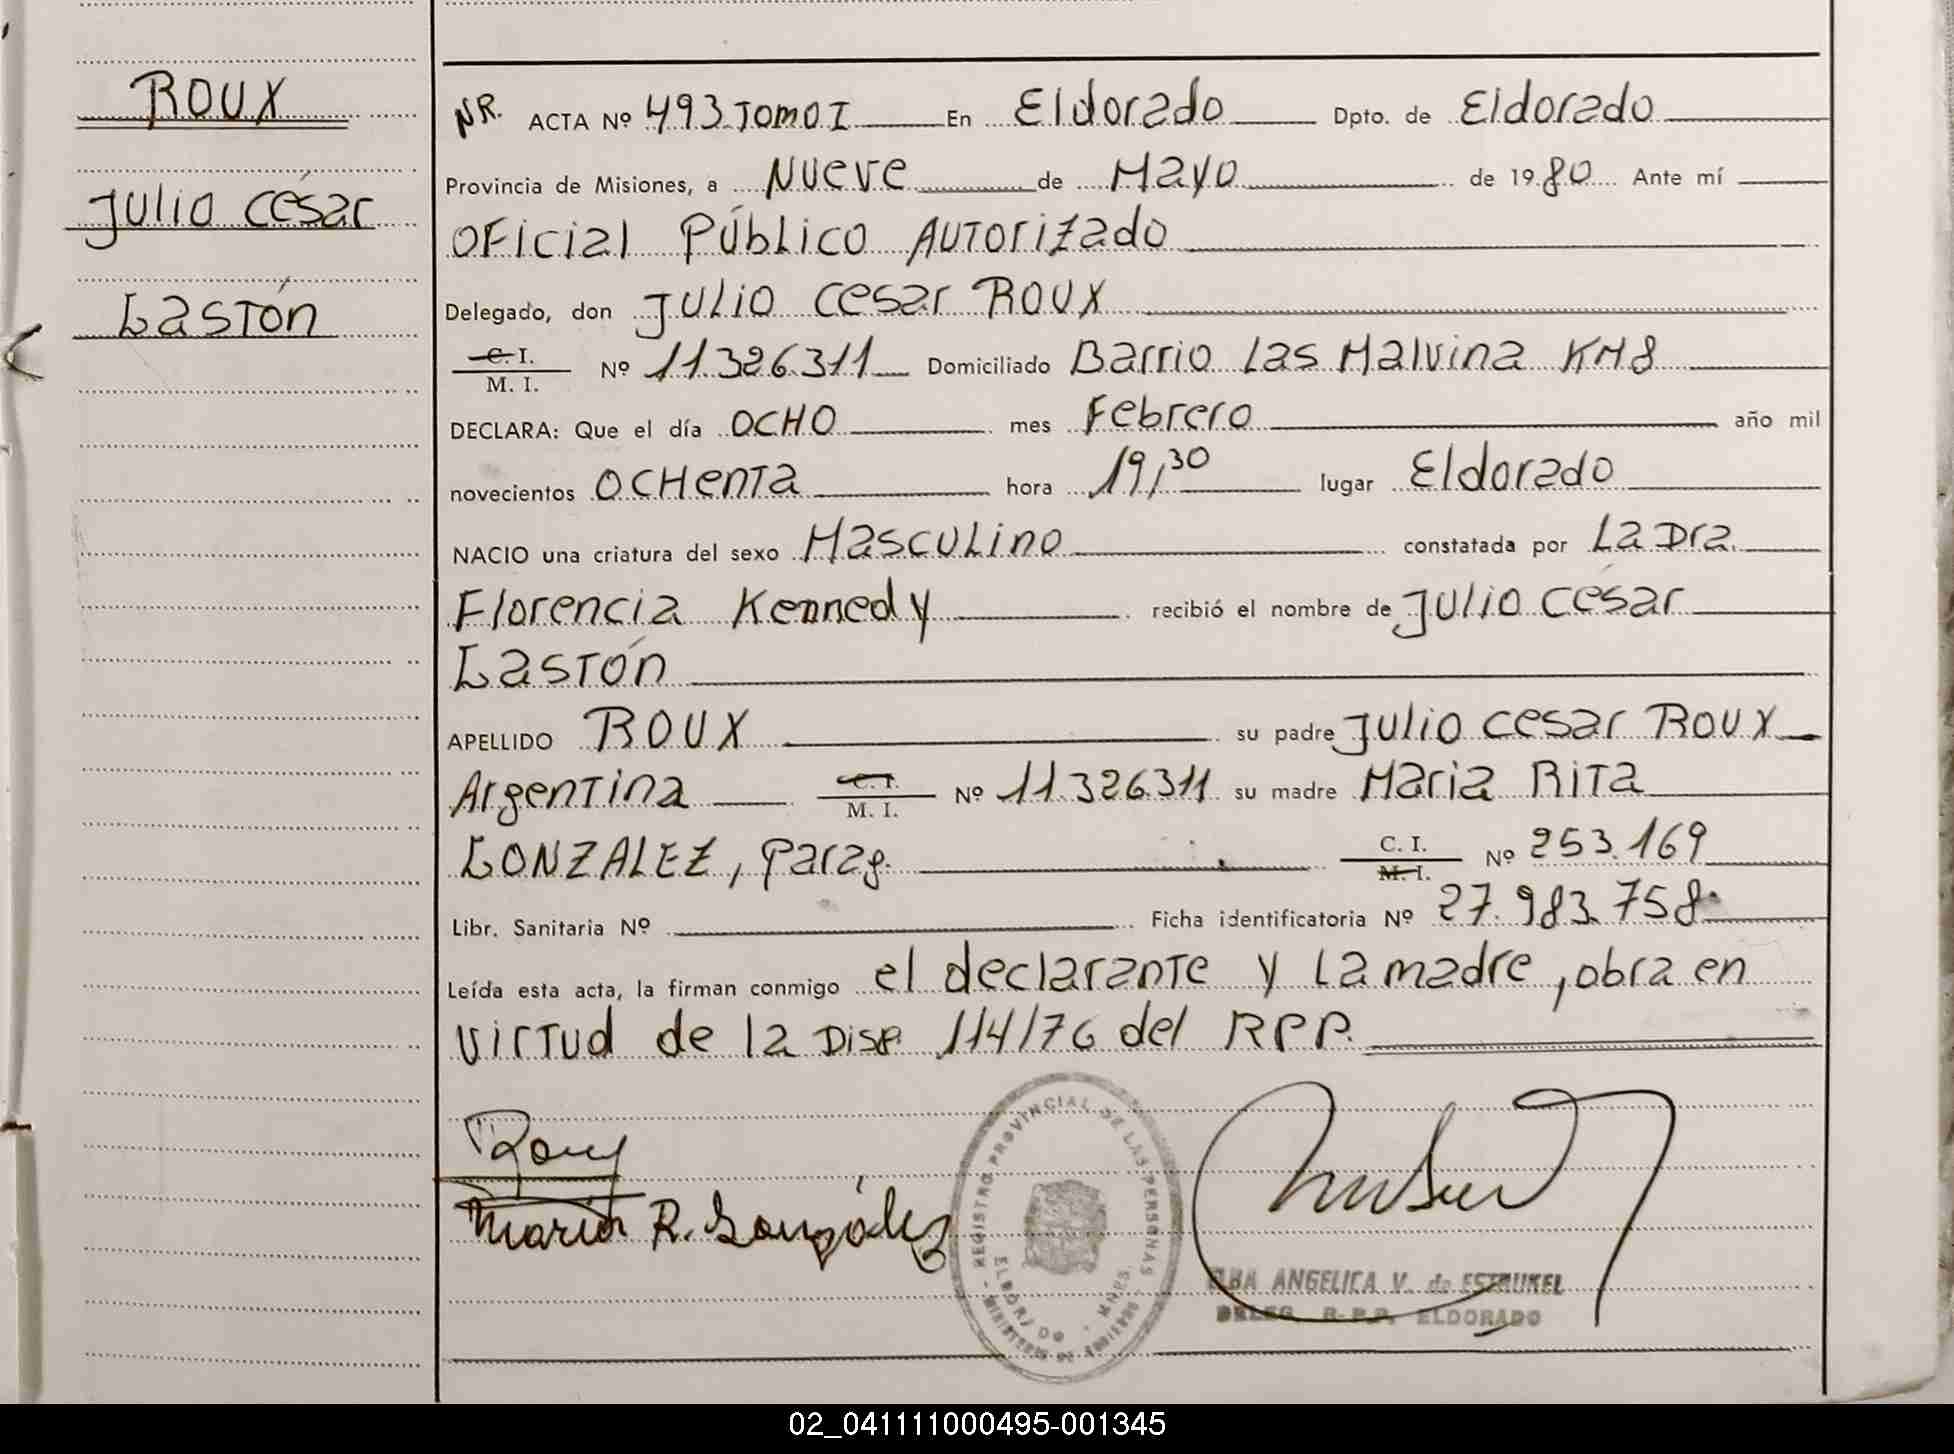 ROUX
Julio César
Gastón
NR. ACTA Nº 493 TOMO I En Eldorado Dpto. de Eldorado
Provincia de Misiones, a Nueve de Mayo de 1980 Ante mí
Oficial Público Autorizado
Delegado, don Julio Cesar Roux
C. I.
M. I. Nº 11.326.311 Domiciliado Barrio Las Malvina KM 8
DECLARA: Que el día OCHO mes Febrero año mil
novecientos OCHenTa hora 19,30 lugar Eldorado
NACIO una criatura del sexo Masculino constatada por La Dra.
Florencia Kennedy recibió el nombre de Julio César
Gastón
APELLIDO ROUX su padre Julio Cesar Roux
Argentina C. I.
M. I. Nº 11.326.311 su madre Maria Rita
GONZALEZ, Parag. C. I.
M. I. Nº 253.169
Libr. Sanitaria Nº Ficha identificatoria Nº 27.983.758
Leída esta acta, la firman conmigo el declarante y La madre, obra en
virtud de la Disp. 114/76 del RPP.
Maria R. González
REGISTRO PROVINCIAL DE LAS PERSONAS
ELDORADO
ELBA ANGELICA V. de
DELEG. R. P. P. ELDORADO
02_041111000495-001345